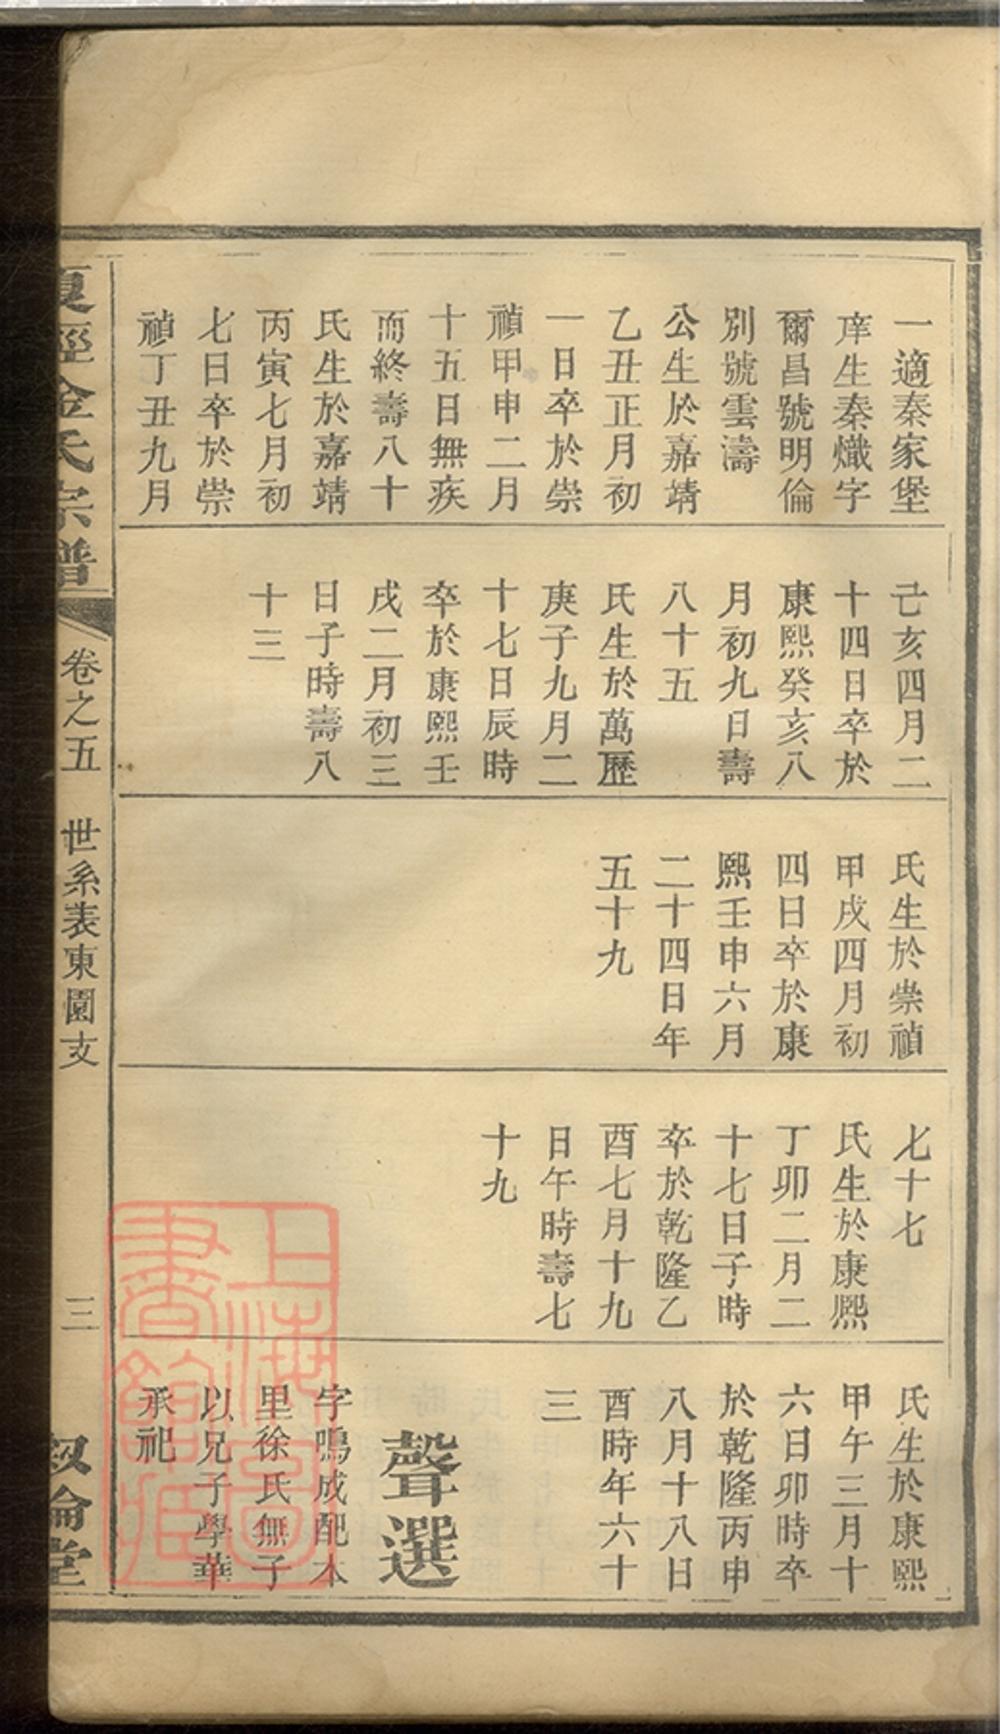 一適秦家堡
庠生秦熾字
爾昌號明倫
別號雲濤
公生於嘉靖
乙丑正月初
一日卒於崇
禎甲申二月
十五日無疾
而終壽八十
氏生於嘉靖
丙寅七月初
七日卒於崇
禎丁丑九月
己亥四月二
十四日卒於
康熙癸亥八
月初九日壽
八十五
氏生於萬歷
庚子九月二
十七日辰時
卒於康熙壬
戌二月初三
日子時壽八
十三
氏生於崇禎
甲戌四月初
四日卒於康
熙壬申六月
二十四日年
五十九
七十七
氏生於康熈
丁卯二月二
十七日子時
卒於乾隆乙
酉七月十九
日午時壽七
十九
氏生於康熙
甲午三月十
六日卯時卒
於乾隆丙申
八月十八日
酉時年六十
三
聲選
字鳴成配本
里徐氏無子
以兄子學華
承祀
金氏宗譜
卷之五
世系表東園支
三
叙倫堂
上海圖書館藏